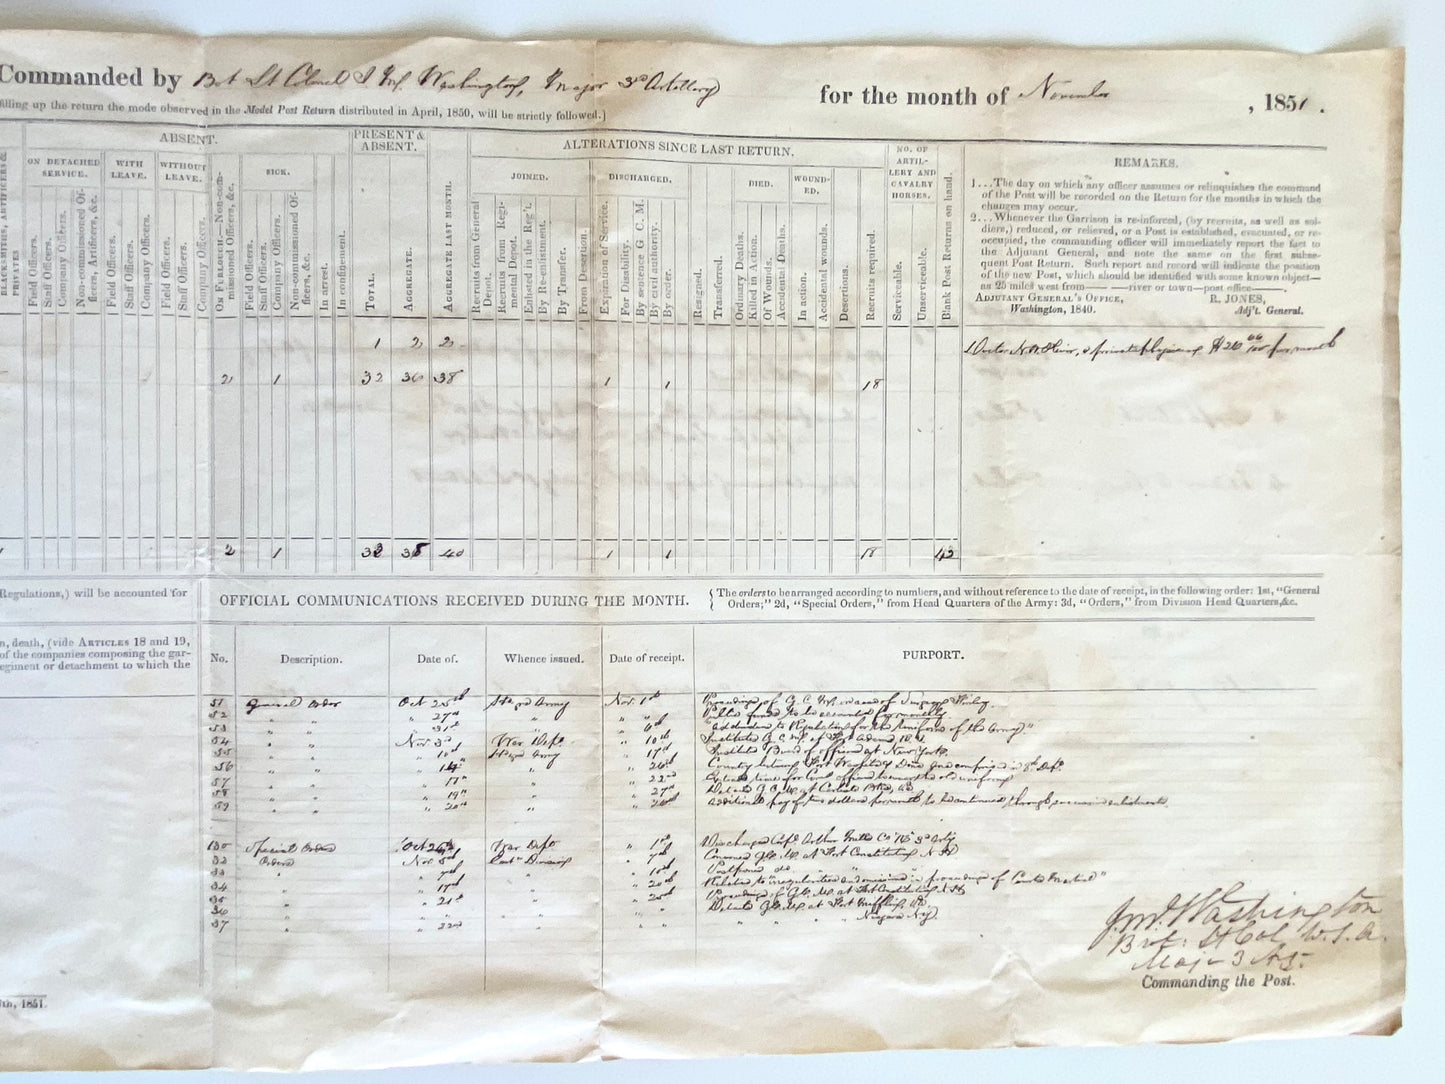 Commanded by Bvt Lt Colonel J M Washington, Major 3rd Artillery for the month of November, 1851.
filling up the return the mode observed in the Model Post Return distributed in April, 1850, will be strictly followed.)
BLACKSMITHS, ARTIFICERS & PRIVATES
ABSENT.
ON DETACHED SERVICE.
Field Officers.
Staff Officers.
Company Officers.
Non-commissioned Officers, Artificers, &c.
WITH LEAVE.
Field Officers.
Staff Officers.
Company Officers.
WITHOUT LEAVE.
Field Officers.
Staff Officers.
Company Officers.
On Furlough.—Non-commissioned Officers, &c.
SICK.
Field Officers.
Staff Officers.
Company Officers.
Non-commissioned Officers, &c.
In arrest.
In confinement.
PRESENT & ABSENT.
TOTAL.
AGGREGATE.
AGGREGATE LAST MONTH.
ALTERATIONS SINCE LAST RETURN.
JOINED.
Recruits from General Depot.
Recruits from Regimental Depot.
Enlisted in the Reg't.
By Re-enlistment.
By Transfer.
From Desertion.
DISCHARGED.
Expiration of Service.
For Disability.
By sentence G. C. M.
By civil authority.
By order.
Resigned.
Transferred.
DIED.
Ordinary Deaths.
Killed in Action.
Of Wounds.
Accidental Deaths.
WOUNDED.
In action.
Accidental wounds.
Desertions.
Recruits required.
NO. OF ARTILLERY AND CAVALRY HORSES.
Serviceable.
Unserviceable.
Blank Post Returns on hand.
REMARKS.
1...The day on which any officer assumes or relinquishes the command
of the Post will be recorded on the Return for the months in which the
changes may occur.
2...Whenever the Garrison is re-inforced, (by recruits, as well as sol-
diers,) reduced, or relieved, or a Post is established, evacuated, or re-
occupied, the commanding officer will immediately report the fact to
the Adjutant General, and note the same on the first subse-
quent Post Return. Such report and record will indicate the position
of the new Post, which should be identified with some known object—
as 25 miles west from— —river or town—post office——.
ADJUTANT GENERAL'S OFFICE, R. JONES,
Washington, 1840. Adj't. General.
1 2 2
Doctor a private physician $20 per month
2 1 32 36 38 1 1 18
2 1 38 40 1 1 18 42
Regulations,) will be accounted for
OFFICIAL COMMUNICATIONS RECEIVED DURING THE MONTH. { The orders to be arranged according to numbers, and without reference to the date of receipt, in the following order: 1st, "General
Orders;" 2d, "Special Orders," from Head Quarters of the Army: 3d, "Orders," from Division Head Quarters,&c.
n, death, (vide ARTICLES 18 and 19,
of the companies composing the gar-
egiment or detachment to which the
No. Description. Date of. Whence issued. Date of receipt. PURPORT.
51 General Order Oct 25th Army Nov. 1st Proceedings of G. C. M. in case of
52 " " " 27th " " "
53 " " " 31st " " 6th "Addendum to Regulations for the Uniform of the Army."
54 " " Nov 3rd War Dept. " 10th Institutes G. C. M. at Fort Adams R. I.
55 " " " Army " 17th Institutes Board of officers at New York.
56 " " " " "
57 " " " 17th " " 22nd
58 " " " 19th " " 27th Details G. C. M. at Carlisle
59 " " " 20th " " additional pay of two dollars per month to be continued through successive enlistments.
130 Special Orders Oct War Dept " 1st Discharges Arthur Co 3rd Arty
32 Orders Nov 5th East Division " 7th Convenes G. C. M. at Fort Constitution N H
33 " " 7th " " 10th Postpones do " "
34 " " 17th " " 20th Relates to "irregularities and omissions in proceedings of Courts Martial"
35 " " 21st " " 25th Proceedings of G. C. M. at Fort Constitution N. H.
36 " " " " " Details G. C. M. at Fort Mifflin
37 " " 22nd " " " " " " Niagara N.Y.
J. M. Washington
Bvt: Lt Col U. S. A.
Maj- 3 Art
Commanding the Post.
th, 1851.